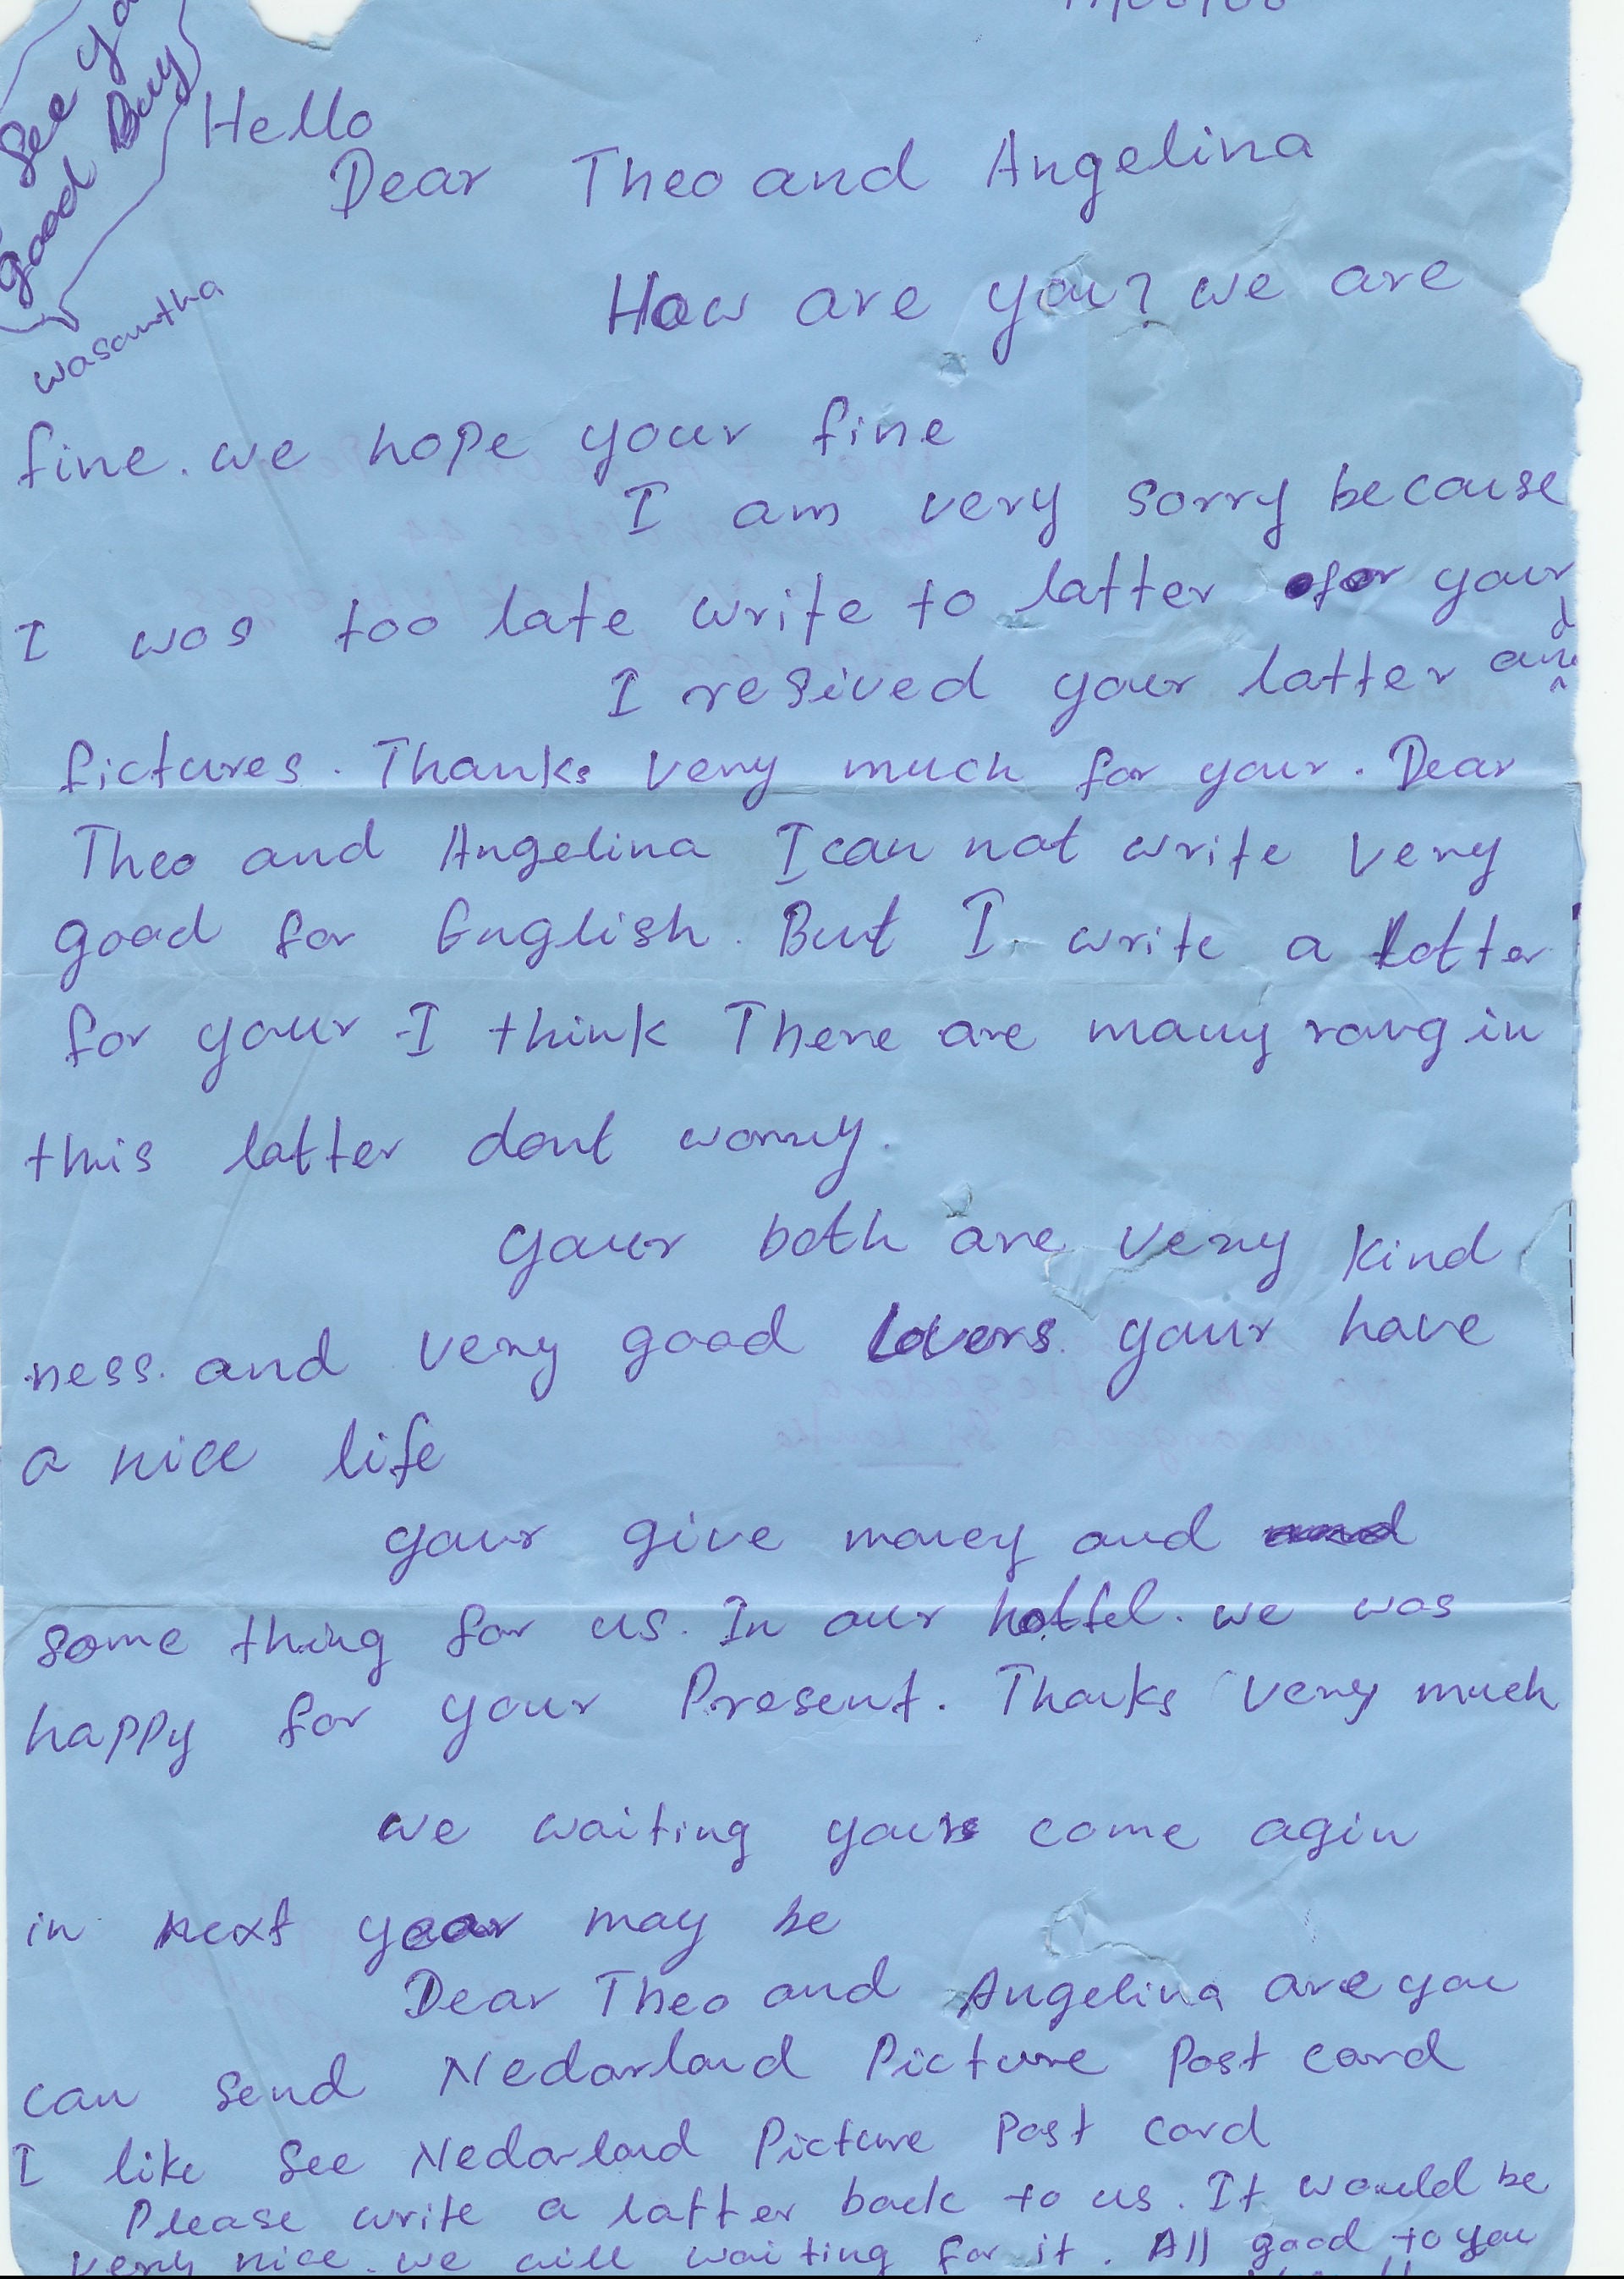 See
Good Buy
wasantha
Hello
Dear Theo and Angelina
How are you? we are
fine. we hope your fine
I am very sorry because
I was too late write to latter for your
I resived your latter and
fictures. Thanks very much for your. Dear
Theo and Angelina I can not write very
good for English. But I write a latter
for your I think There are many rong in
this latter dont worruy.
your both are very kind
ness. and very good lovers your have
a nice life
your give money and
some thing for us. In our hottel. we was
happy for your Present. Thanks very much
we waiting yours come agin
in next year may be
Dear Theo and Angelina are you
can send Nedarland Picture Post card
I like See Nedarland Picture Post card
Please write a latter back to us. It would be
very nice. we will waiting for it. All good to you